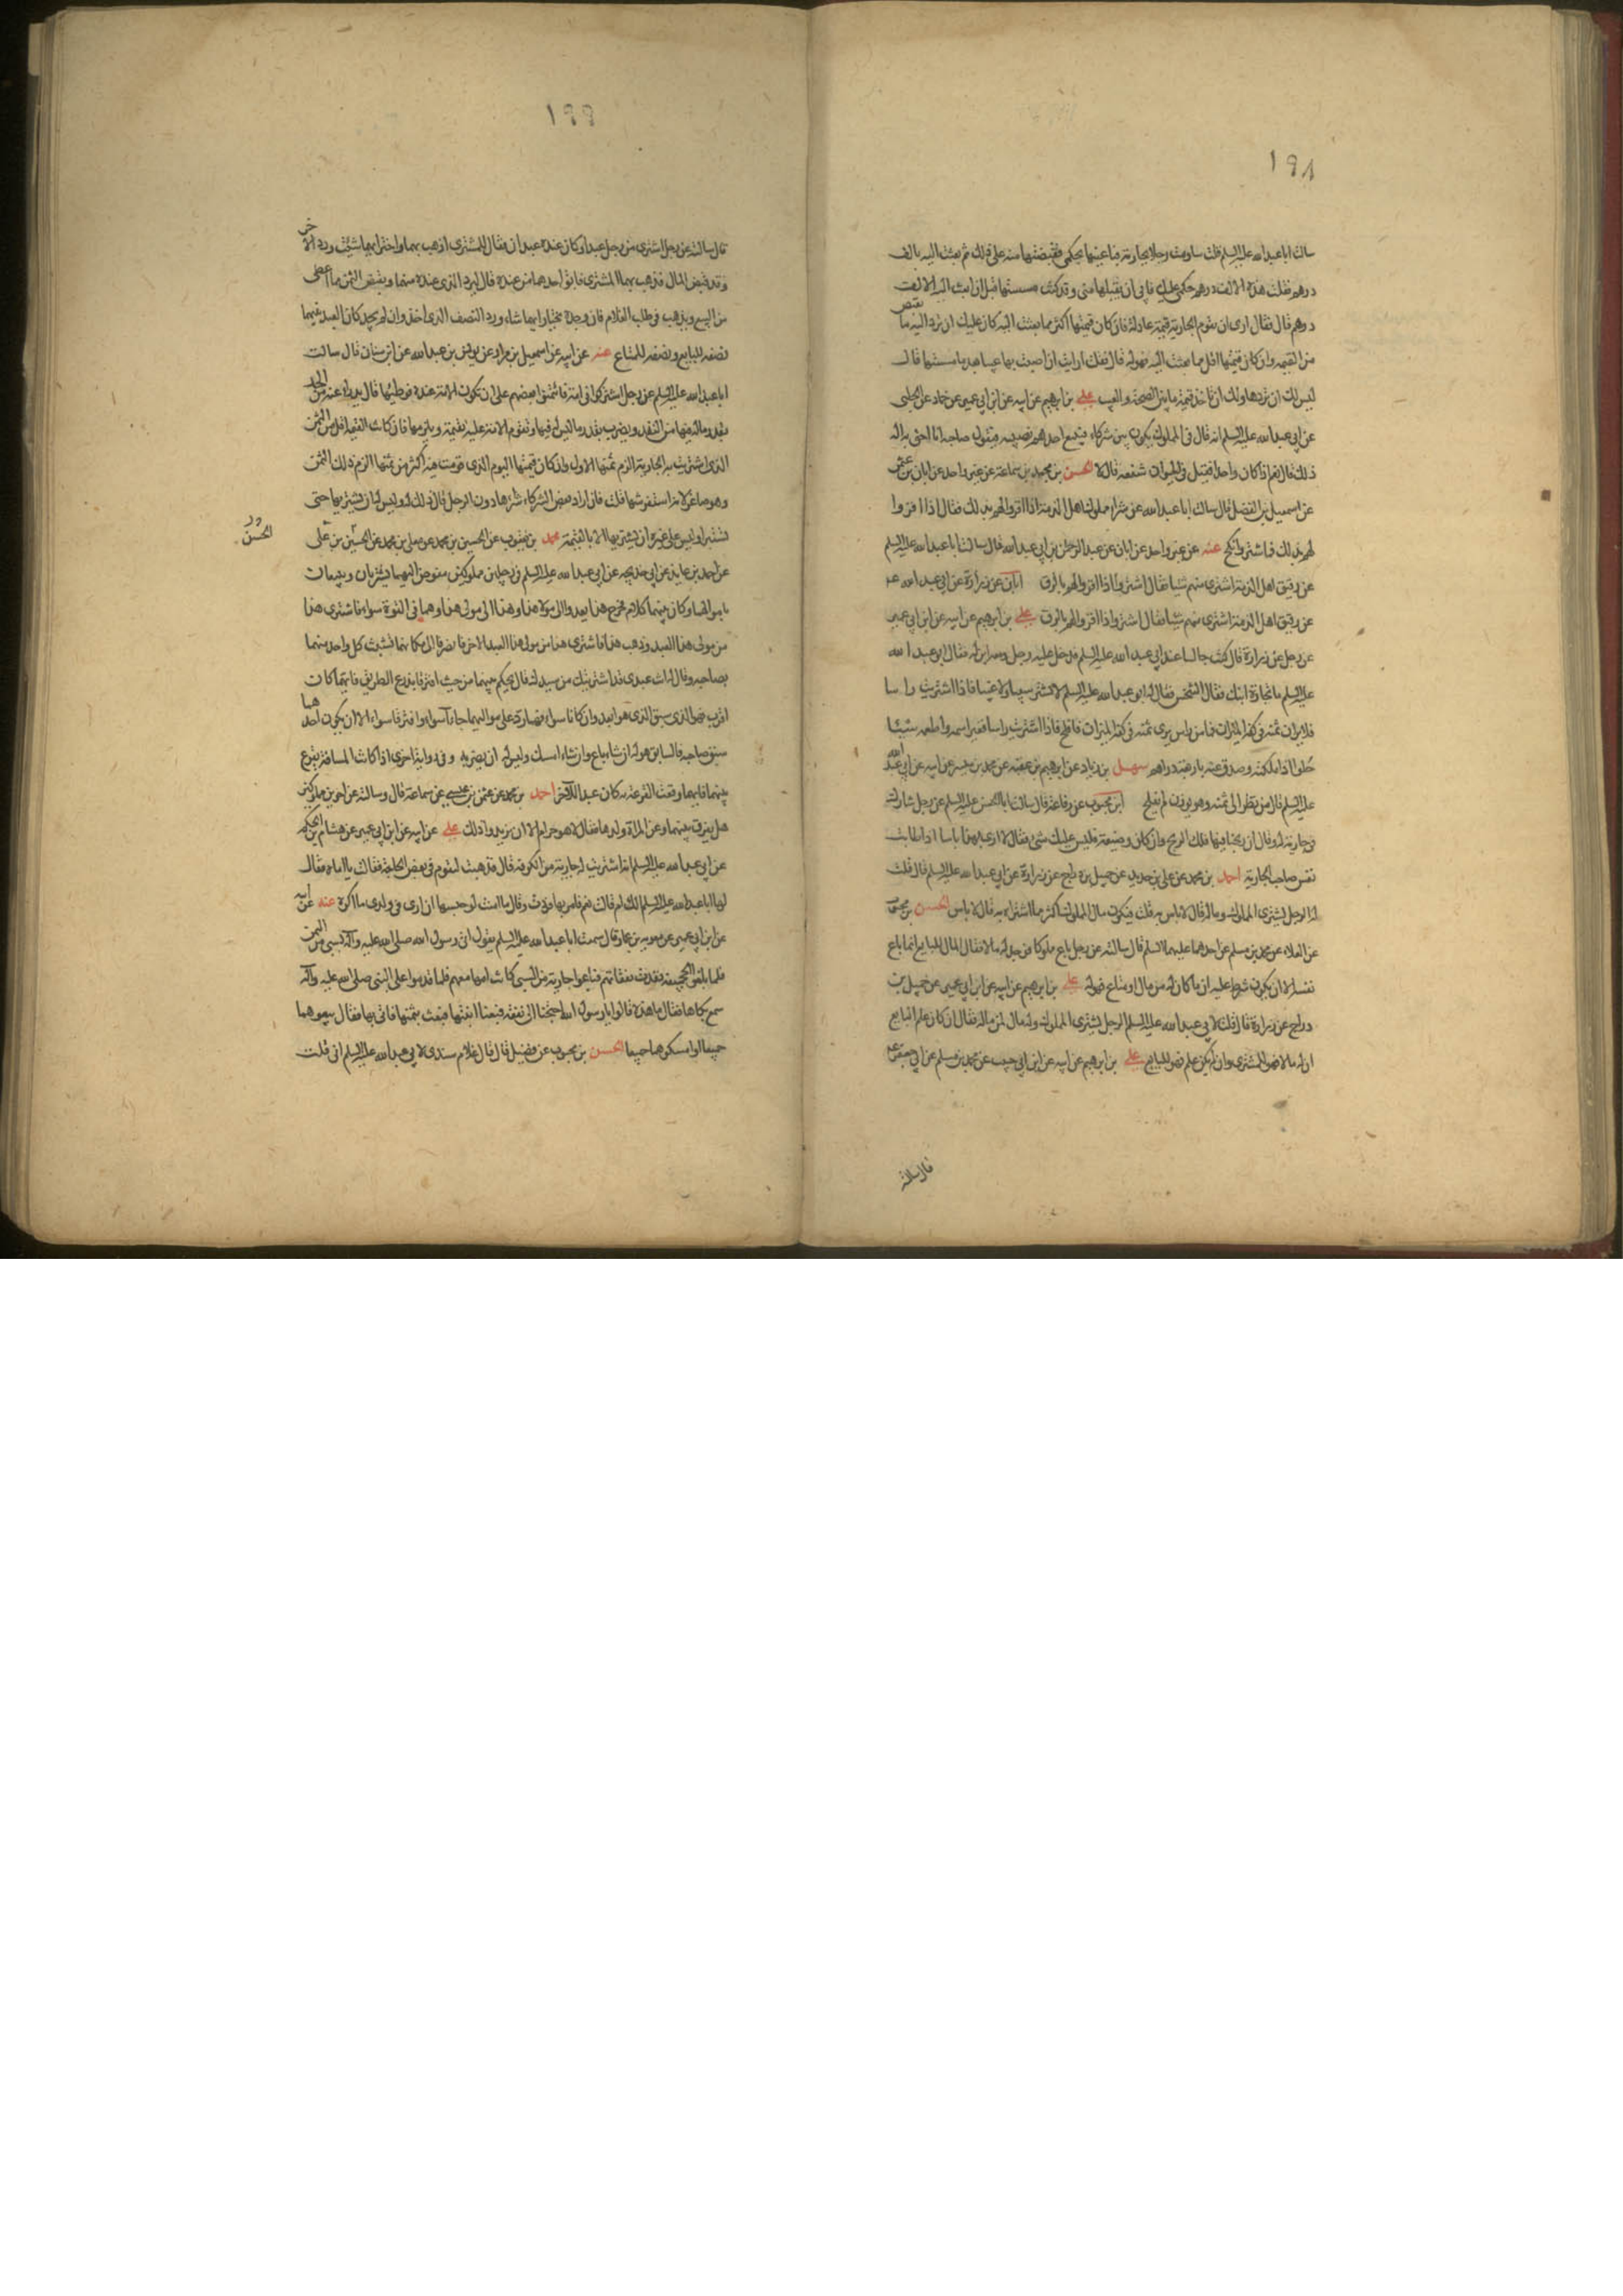 ١٩٨
سالت ابا عبد الله عليه السلم قلت ساومت رجلا بجارية فباعنيها بحكمي فقبضتها منه على ذلك ثم بعثت اليه بالف
درهم فقلت هذه الالف درهم حكمي عليك فابى ان يقبلها مني وقد كنت مسستها قبل ان ابعث اليه الالف
درهم قال فقال ارى ان تقوم الجارية قيمة عادلة فان كان قيمتها اكثر مما بعثت اليه كان عليك ان ترد اليه ما نقص
من القيمه وان كان قيمتها اقل مما بعثت اليه فهو له قال فقلت ارايت ان اصبت بها عيبا بعد ما مسستها قال
ليس لك ان تردها ولك ان تاخذ قيمة ما بين الصحة والعيب علي بن ابرهيم عن ابيه عن ابن ابي عمير عن حماد عن الحلبي
عن ابي عبد الله عليه السلم انه قال في المملوك يكون بين شركاء فيبيع احدهم نصيبه فيقول صاحبه انا احق به اله
ذلك قال نعم اذا كان واحدا فقيل في الحيوان شفعه قال لا الحسن بن محمد بن سماعة عن غير واحد عن ابان بن عثمن
عن اسمعيل بن الفضل قال سالت ابا عبد الله عن شراء مملوك اهل الذمة اذا اقروا لهم بذلك فقال اذا اقروا
لهم بذلك فاشتر وانكح عنه عن غير واحد عن ابان عن عبد الرحمن بن ابي عبد الله قال سالت ابا عبد الله عليه السلم
عن رقيق اهل الذمة اشترى منهم شيئا فقال اشتر اذا اقروا لهم بالرق ابان عن زرارة عن ابي عبد الله عه
عن رقيق اهل الذمة اشترى منهم شيئا فقال اشتر اذا اقروا لهم بالرق علي بن ابرهيم عن ابيه عن ابن ابي عمير
عن رجل عن زرارة قال كنت جالسا عند ابي عبد الله عليه السلم فدخل عليه رجل ومعه ابن له فقال ابو عبد الله
عليه السلم ما تجارة ابنك فقال التنخس فقال له ابو عبد الله عليه السلم لا تشتر سبيا ولا غبيا فاذا اشتريت راسا
فلا يرين ثمنه في كفة الميزان فما من راس يرى ثمنه في كفة الميزان فافلح فاذا اشتريت راسا فغير اسمه واطعمه شيئا
حلوا اذا ملكته وصدق عنه باربعة دراهم سهل بن زياد عن ابرهيم بن عقبه عن محمد بن ميسر عن ابيه عن ابي عبد الله
عليه السلم قال من نظر الى ثمنه وهو يوزن لم يفلح ابن محبوب عن رفاعة قال سالت ابا الحسن عليه السلم عن رجل شارك
في جارية له وقال ان ربحنا فيها فلك الربح وان كان وضيعة فليس عليك شئ فقال لا ارى بهذا باسا اذا طابت
نفس صاحب الجارية احمد بن محمد عن علي بن حديد عن جميل بن دراج عن زرارة عن ابي عبد الله عليه السلم قال قلت
له الرجل يشترى المملوك وماله قال لا باس به قلت فيكون مال المملوك اكثر مما اشتراه به قال لا باس الحسن بن محبوب
عن العلاء عن محمد بن مسلم عن احدهما عليهما السلم قال سالته عن رجل باع مملوكا فوجد له مالا فقال المال للبايع انما باع
نفسه الا ان يكون شرط عليه ان ما كان له من مال او متاع فهو له علي بن ابرهيم عن ابيه عن ابن ابي عمير عن جميل بن
دراج عن زرارة قال قلت لابي عبد الله عليه السلم الرجل يشترى المملوك وله مال لمن ماله فقال ان كان علم البايع
ان له مالا فهو للمشتري وان لم يكن علم فهو للبايع علي بن ابرهيم عن ابيه عن ابن ابي حبيب عن محمد بن مسلم عن ابي جعفر عه
قال سالته
١٩٩
قال سالته عن رجل اشترى من رجل عبدا وكان عنده عبدان فقال للمشترى اذهب بهما واختر ايهما شئت ورد الاخر
وقد قبض المال فذهب بهما المشترى فابق احدهما من عنده قال ليرد الذى عنده منهما ويقبض الثمن مما اعطى
من البيع ويذهب في طلب الغلام فان وجده يختار ايهما شاء ورد النصف الذى اخذ وان لم يجد كان العبد بينهما
نصفه للبايع ونصفه للمتاع عنه عن ابيه عن اسمعيل بن مرار عن يونس بن عبد الله عن ابن سنان قال سالت
ابا عبد الله عليه السلم عن رجل اشتركوا في امة فائتمنوا بعضهم على ان تكون الامة عنده فوطئها قال يدرا عنه من الحد
بقدر ماله فيها من النقد ويضرب بقدر ما ليس له فيها وتقوم الامة عليه بقيمة ويلزمها فان كانت القيمة اقل من الثمن
الذى اشتريت به الجارية الزم ثمنها الاول وان كان قيمتها اليوم الذى قومت فيه اكثر من ثمنها الزم ذلك الثمن
وهو صاغر لانه استفرشها قلت فان اراد بعض الشركاء شراءها دون الرجل قال ذلك له وليس له ان يشتريها حتى
تستبرا وليس على غيره ان يشتريها الا بالقيمة محمد بن يعقوب عن الحسين بن محمد عن معلى بن محمد عن الحسين بن علي
الحسن
عن احمد بن عايذ عن ابي خديجه عن ابي عبد الله عليه السلم في رجلين مملوكين مفوض اليهما يشتريان ويبيعان
باموالهما وكان بينهما كلام فخرج هذا يعدو الى مولا هذا وهذا الى مولى هذا وهما في القوة سواء فاشترى هذا
من مولى هذا العبد وذهب هذا فاشترى هذا من مولى هذا العبد الاخر فانصرفا الى مكانهما فتشبث كل واحد منهما
بصاحبه وقال له انت عبدى قد اشتريتك من سيدك قال يحكم بينهما من حيث افترقا بذرع الطريق فايهما كان
اقرب فهو الذى سبق الذى هو ابعد وان كانا سواء فهما رد على مواليهما جاءا سواء وافترقا سواء الا ان يكون احدهما
سبق صاحبه فالسابق هو له ان شاء باع وان شاء امسك وليس له ان يضر به وفي رواية اخرى اذا كانت المسافة يقرع
بينهما فايهما وقعت القرعة به كان عبد الآخر احمد بن محمد عن عثمن بن عيسى عن سماعة قال وسالته عن اخوين مملوكين
هل يفرق بينهما وعن المراة وولدها فقال لا هو حرام الا ان يريدوا ذلك علي عن ابيه عن ابن ابي عمير عن هشام بن الحكم
عن ابي عبد الله عليه السلم انه اشتريت له جارية من الكوفه قال فذهبت لتقوم في بعض الحاجة فقالت يا اماه فقال
لها ابا عبد الله عليه السلم الك ام قالت نعم فامر بها فردت وقال ما امنت لو حبستها ان ارى في ولدى ما اكره عنه عن ابيه
عن ابن ابي عمير عن معويه بن عمار قال سمعت ابا عبد الله عليه السلم يقول اتي رسول الله صلى الله عليه وآله بسبي من اليمن
فلما بلغوا الجحفة نفدت نفقاتهم فباعوا جارية من السبى كانت امها معهم فلما قدموا على النبى صلى الله عليه وآله
سمع بكاءها فقال ما هذه قالوا يا رسول الله احتجنا الى نفقة فبعنا ابنتها فبعث بثمنها فاتى بها فقال بيعوهما
جميعا او امسكوهما جميعا الحسن بن محبوب عن فضيل قال قال غلام سندى لابي عبد الله عليه السلم اني قلت